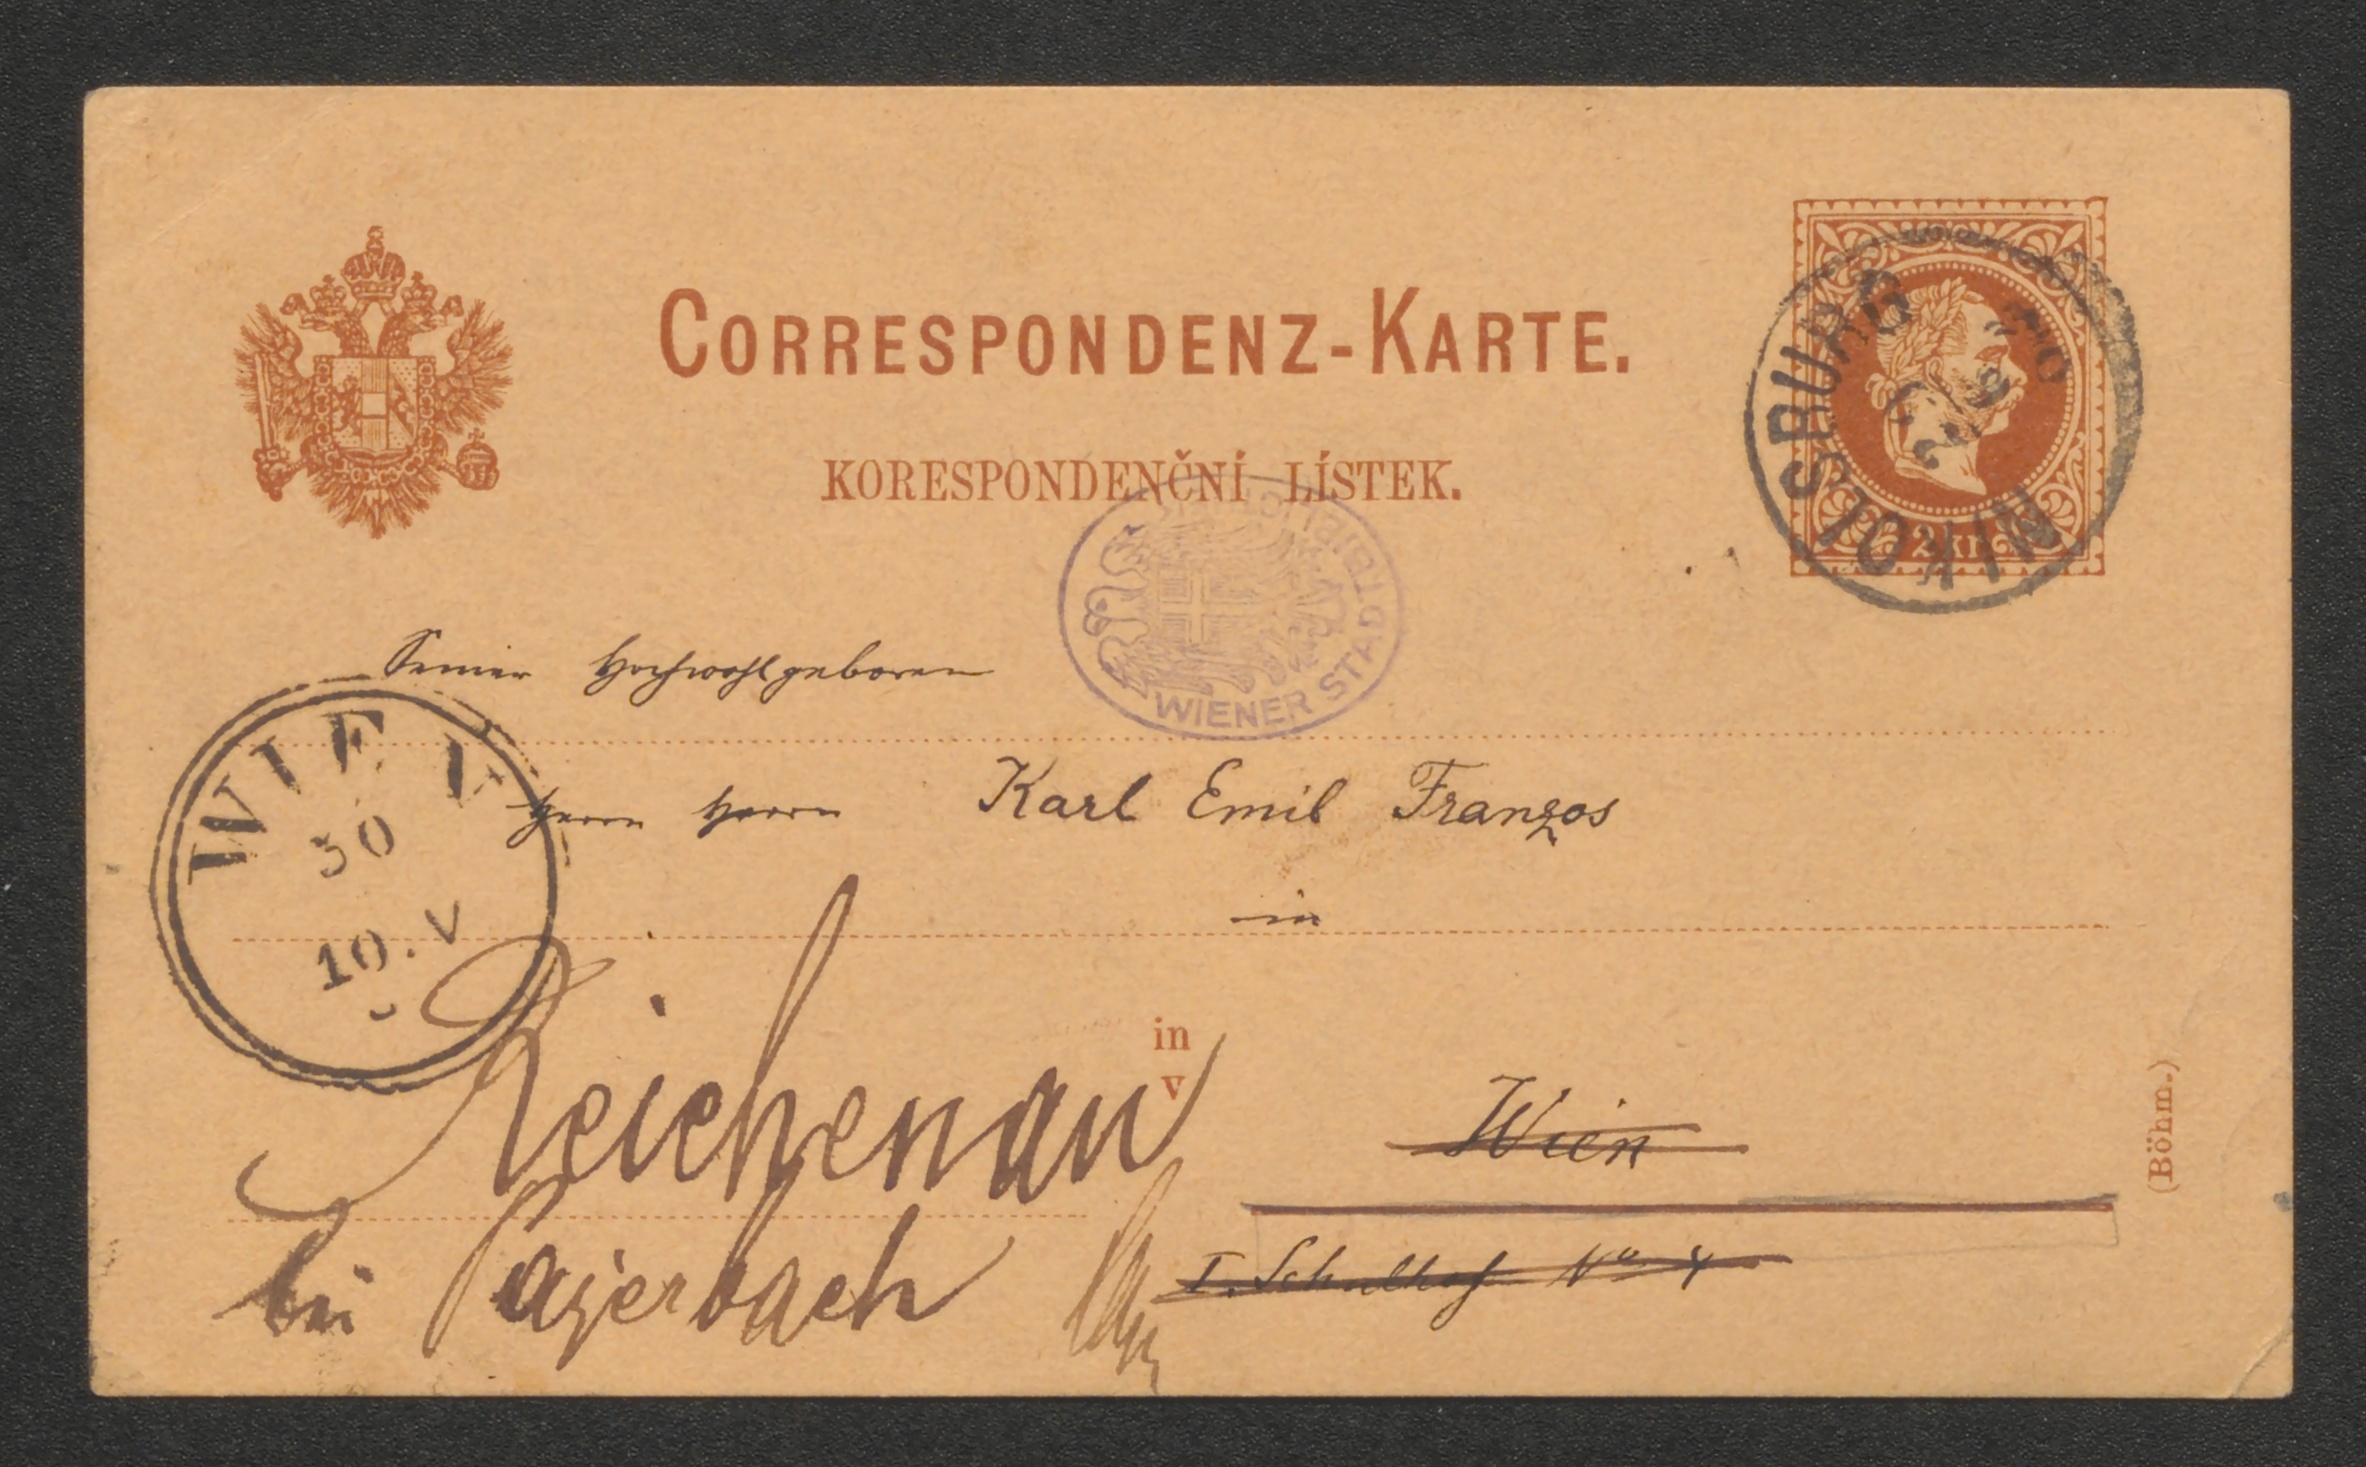 CORRESPONDENZ-KARTE.
KORESPONDENČNÍ LÍSTEK.
NIKOLSBURG
2 kr.
WIENER STADTBIBLIOTHEK
Seiner Hochwohlgeboren
WIEN
30
10. V
Herrn Herrn Karl Emil Franzos
in
in
v
Wien
Reichenau
bei Payerbach
I. Schulhof No 4
(Böhm.)